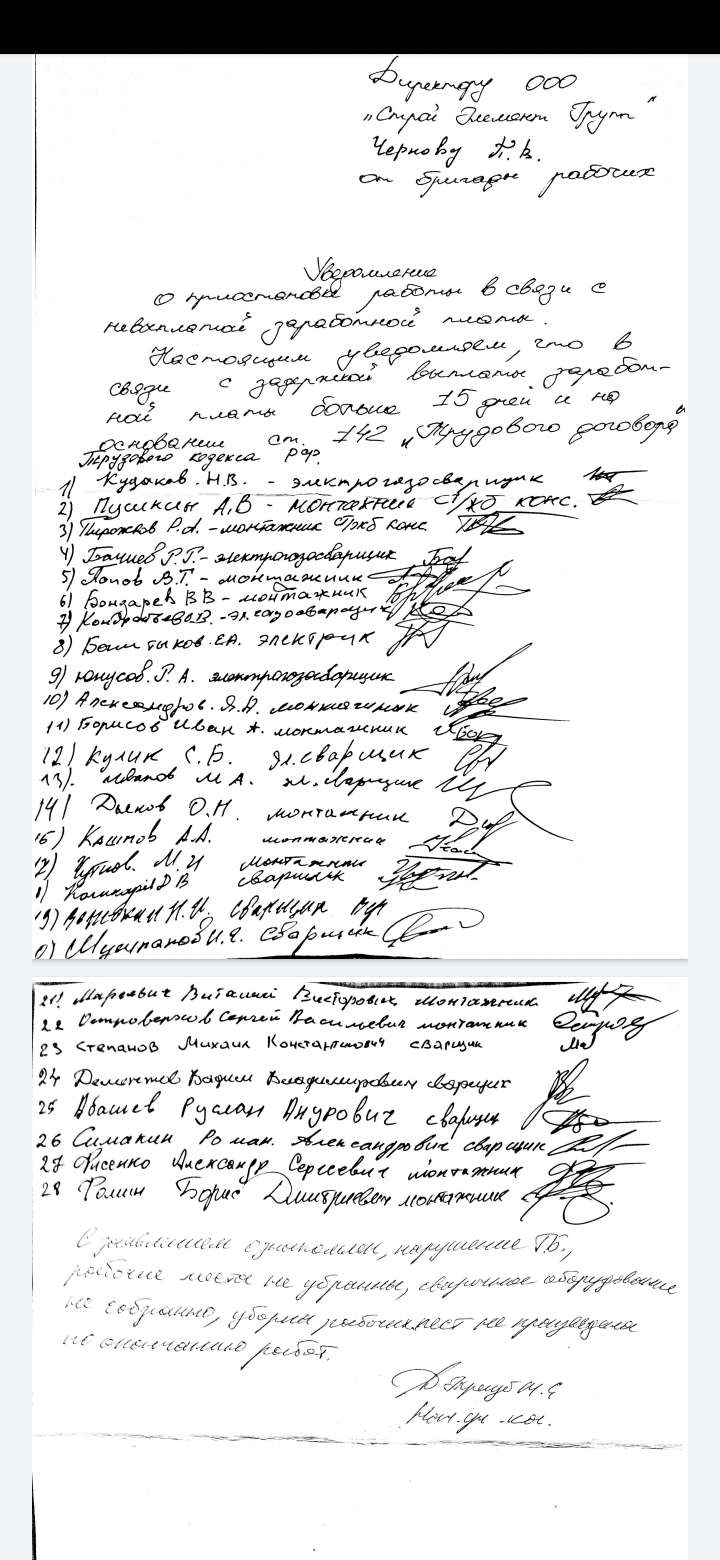 Директору ООО
"Строй Элемент Групп"
Чернову П.В.
от бригады рабочих
Уведомление
О приостановке работы в связи с
невыплатой заработной платы.
Настоящим уведомляем, что в
связи с задержкой выплаты заработ-
ной платы больше 15 дней и на
основании ст. 142 "Трудового договора"
Трудового кодекса РФ.
1) Кудаков. Н.В. - электрогазосварщик
2) Пушкин А.В - монтажник ст/жб конс.
3) Пирожков Р.А. - монтажник Ст/жб конс
4) Бачиев Р.Г. - электрогазосварщик
5) Попов В.Г. - монтажник
6) Бондарев В В - монтажник
7) Кондратьев В. - эл. газосварщик
8) Баштыков. Е.А. электрик
9) Юнусов. Р. А. электрогазосварщик
10) Александров. Я.А. монтажник
11) Борисов Иван А. монтажник
12) Кулик С.Б. эл.сварщик
13). Иванов М А. эл. сварщик
14) Дьяков О.Н. монтажник
15) Кашпов А.А. монтажник
М.И монтажник
В сварщик
Н.И. сварщик
сварщик
21) Виталий Викторович монтажник
22 Островерхов Сергей Васильевич монтажник
23 Степанов Михаил Константинович сварщик
24 Дементьев Вадим Владимирович сварщик
25 Абашев Руслан Анурович сварщик
26 Симакин Роман. Александрович сварщик
27 Фисенко Александр Сергеевич монтажник
28 Фомин Борис Дмитриевич монтажник
С заявлением ознакомлен, нарушение Т.Б.,
рабочие места не убранны, сварочное оборудование
не собранно, уборка рабочих мест не произведена
по окончанию работ.